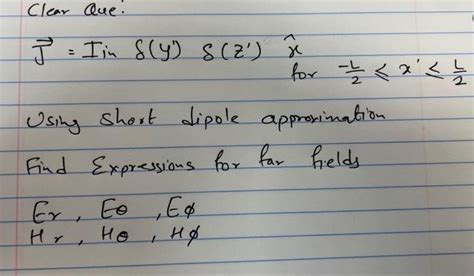 Clear Que:
J⃗ = Iin δ(y') δ(z') x̂
for -L/2 ≤ x' ≤ L/2
Using short dipole approximation
Find Expressions for far fields
Er, Eθ, Eϕ
Hr, Hθ, Hϕ